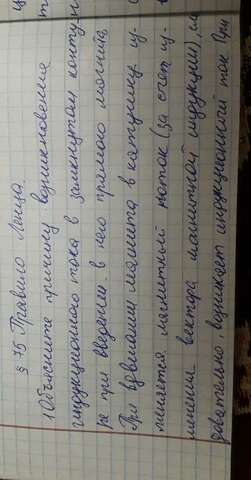 § 45 Правило Ленца.
1 Объясните причину возникновение
индукционного тока в замкнутом конту-
ре при введении в него прямого магнита
При вдвигании магнита в катушку из-
меняется магнитный поток (за счет из-
менения вектора магнитной индукции), сле
довательно, возникает индукционный ток (при